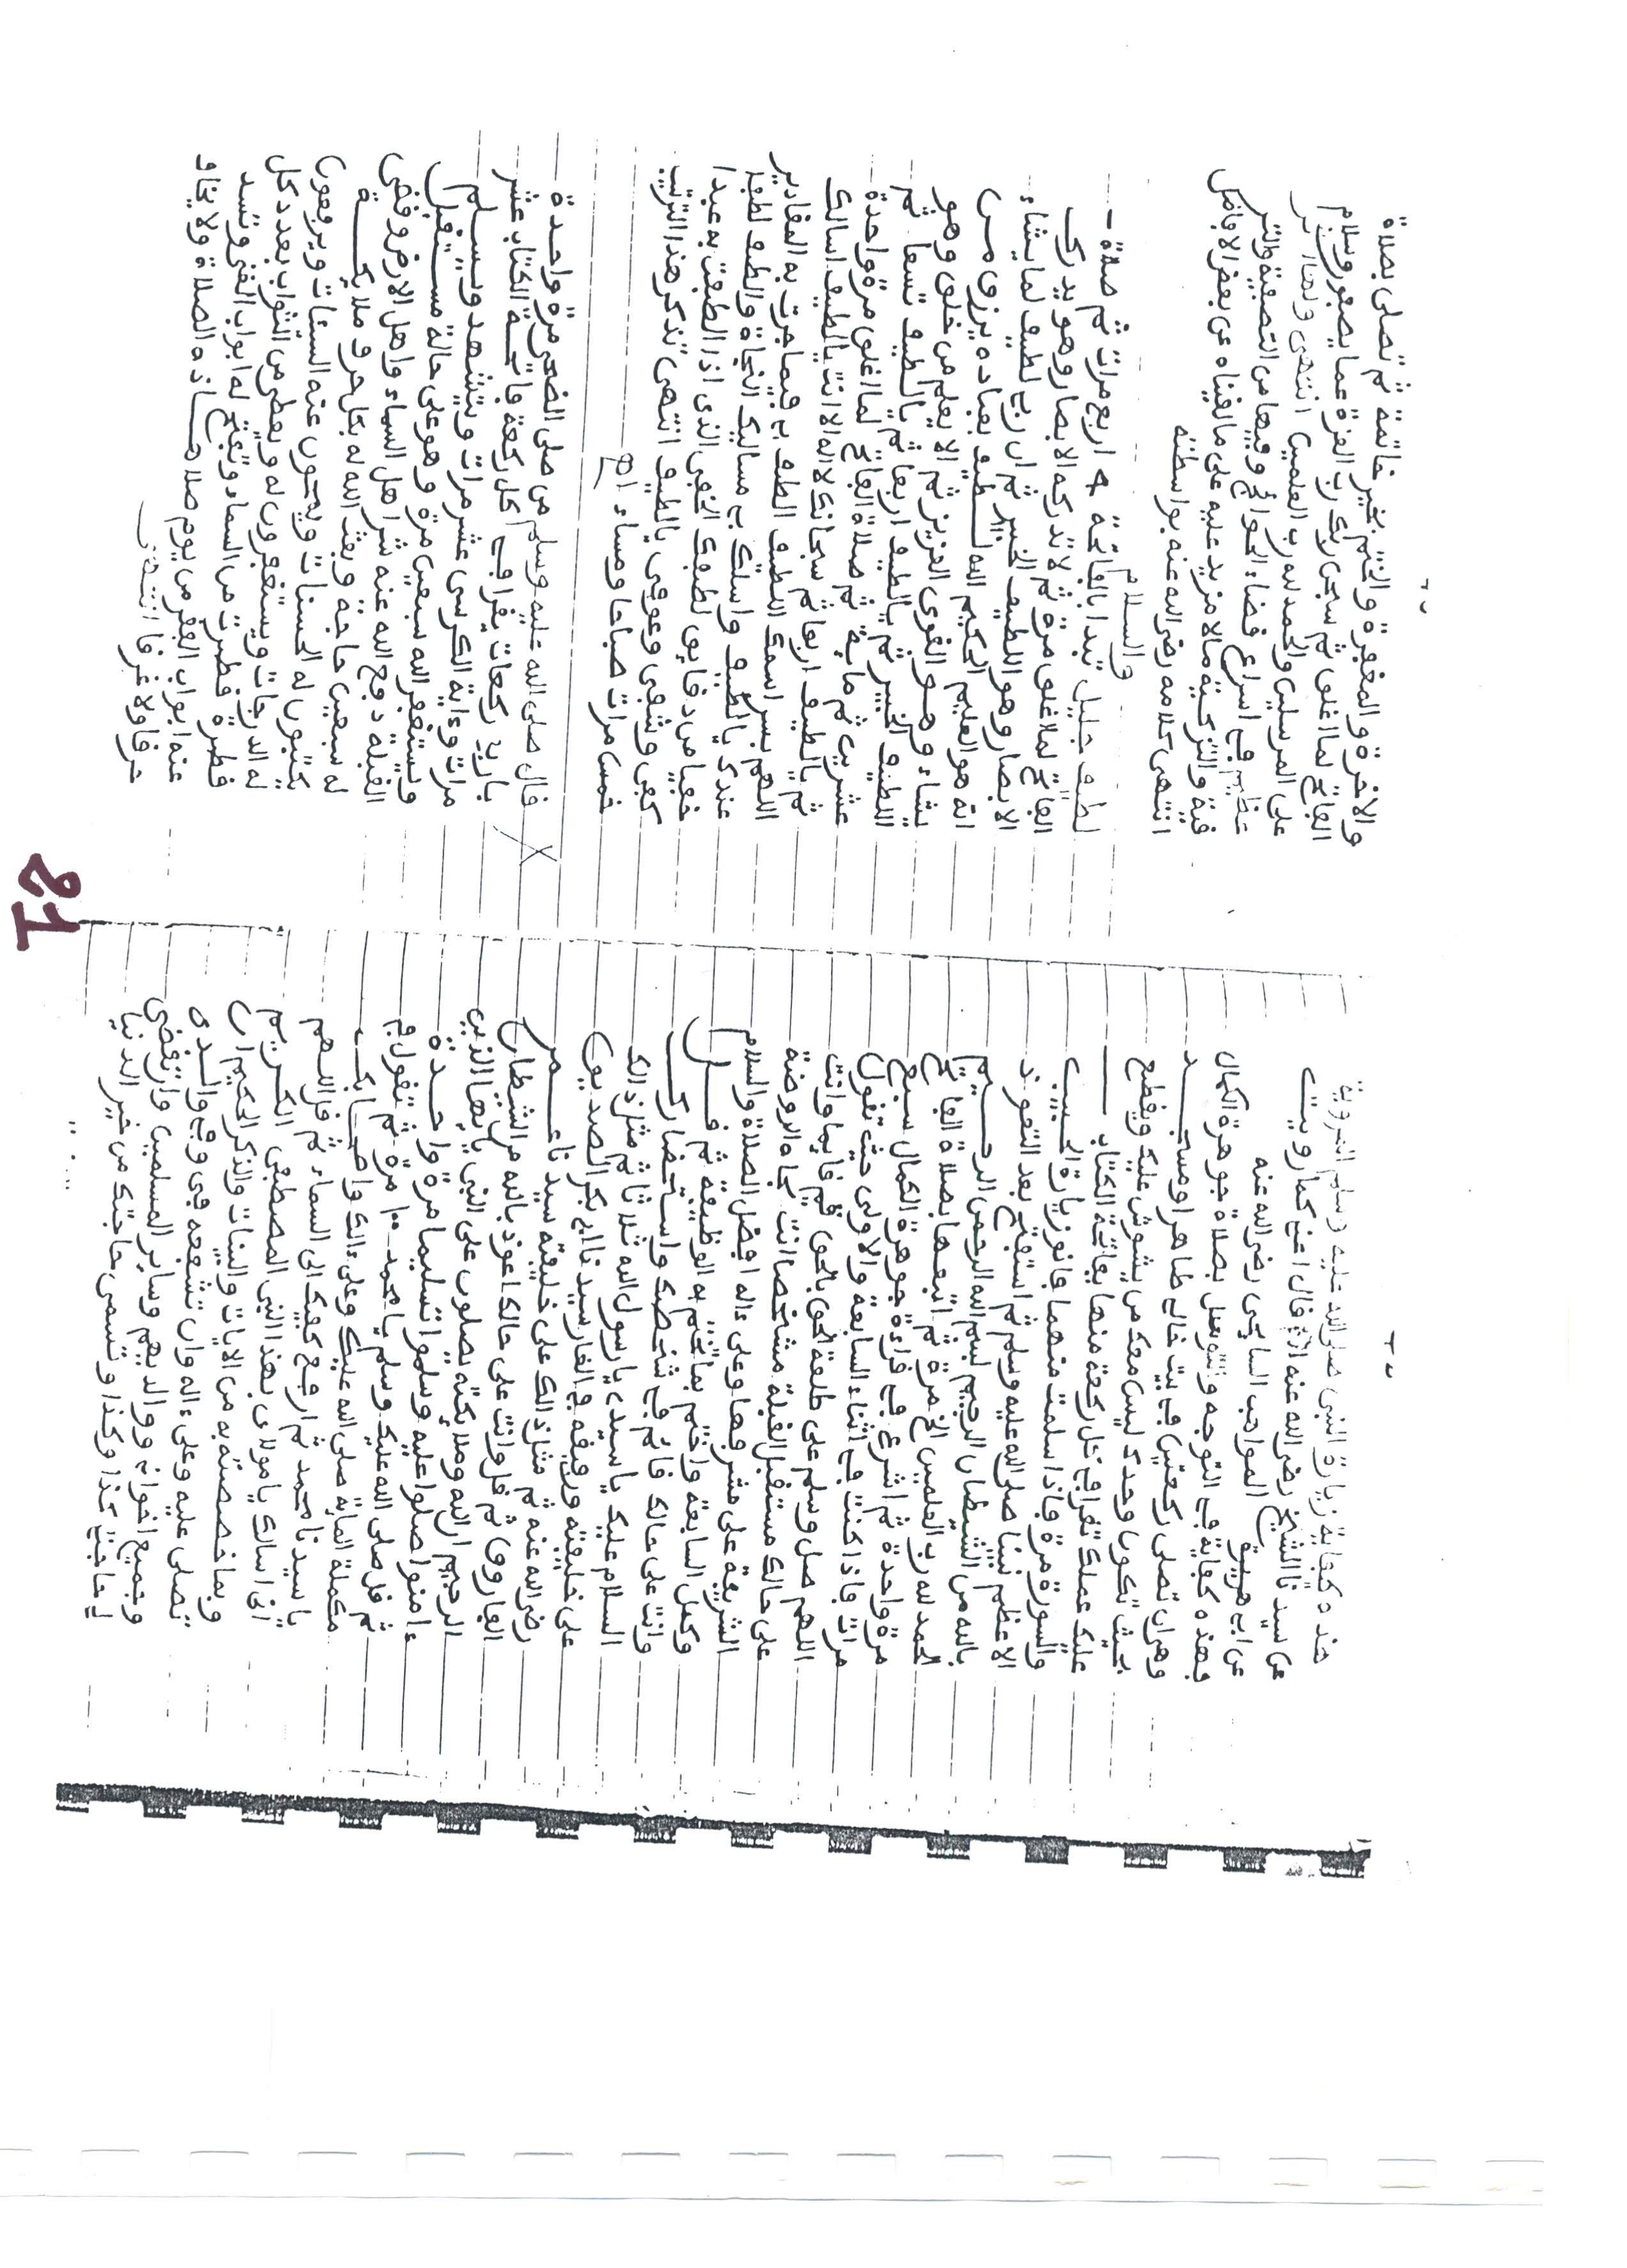 هذه كيفية زيارة النبي صلى الله عليه وسلم المروية
عن سيدنا الشيخ رضي الله عنه قال اعني كما رويت
عن ابي المواهب السايحي رضي الله عنه
وهذه كيفية في التوجه والتوسل بصلاة جوهرة الكمال
وهي ان تصلي ركعتين في بيت خالي طاهر او مسجد
بحيث تكون وحدك ليس معك من يشوش عليك ويقطع
عليك عملك تقرا في كل ركعة منها بفاتحة الكتاب
والسورة مرة فاذا سلمت منهما فانو زيارة الحبيب
الاعظم نبينا صلى الله عليه وسلم ثم استفتح بعد التعوذ
بالله من الشيطان الرجيم بسم الله الرحمن الرحيم
الحمد لله رب العلمين الخ مرة ثم اتبعها بصلاة الفاتح
مرة واحدة ثم اشرع في قراءة جوهرة الكمال سبع
مرات فاذا كنت في اثناء السابعة والاولى حيث تقول
اللهم صل وسلم على طلعة الحق بالحق قم قايما وانت
على حالك مستقبل القبلة مشاخصا انت تجاه الروضة
الشريفة على مشرفها وعلى ءاله افضل الصلاة والسلام
وكمل السابعة واختم بما تختم به الوظيفة ثم قــل
وانت على حالك قائم في شخصك واستحضارك
السلام عليك يا سيدي يا رسول الله ثلاثا ثم مثل ذلك
على خليفته ورفيقه في الغار سيدنا ابي بكر الصديق
رضي الله عنه ثم مثل ذلك على خليفته سيدنا عــمر
الفاروق ثم قل وانت على حالك اعوذ بالله من الشيطان
الرجيم ان الله وملايكته يصلون على النبي يا ايها الذين
ءامنوا صلوا عليه وسلموا تسليما مرة واحدة
ثم قل صلى الله عليك وسلم يا محمد ١٠٠ مرة ثم تقول في
مكملة الماية صلى الله عليك وعلى ءالك واصحابك
يا سيدنا محمد ثم ارفع كفيك الى السماء ثم قل اللهم
اني اسالك يا مولاي بهذا النبي المصطفى الكريم
وبما خصصته به من الايات والبينات والذكر الحكيم ان
تصلي عليه وعلى ءاله وان تشفعه في وفي والدي
وجميع اخوانه ووالديهم وساير المسلمين وان تقضي
لي حاجتي كذا وكذا وتسمي حاجتك من خير الدنيا
والاخرة والمغفرة والختم بخير خاتمة ثم تصلي بصلاة
الفاتح لما اغلق ثم سبحن ربك رب العزة عما يصفون وسلام
على المرسلين والحمد لله رب العلمين انتهى
في اسراع قضاء الحوائج وفيها من التصفية والتر
قية والتزكية ما لا مزيد عليه على ما لقيناه عن بعض الافاضل
انتهى كلامه رضي الله عنه بواسطته
والسلام
لطيف جليل تبدا بالفاتحة ٤ اربع مرات ثم صلاة
الفاتح لما اغلق مرة ثم لا تدركه الابصار وهو يدرك
الابصار وهو اللطيف الخبير ثم ان ربي لطيف لما يشاء
انه هو العليم الحكيم الله لطيف بعباده يرزق من
يشاء وهو القوي العزيز ثم الا يعلم من خلق وهو
اللطيف الخبير ثم يا لطيف اربعا ثم يا لطيف تسعا ثم
عشرين ثم ماية ثم صلاة الفاتح لما اغلق مرة واحدة
ثم يا لطيف اربعا ثم سبحانك لا اله الا انت يا لطيف اسالك
اللهم بسر اسمك اللطيف الطف بي فيما جرت به المقادير
عندك يا لطيف واسلك بي مسالك النجاة والطف لطفا
خفيا من دقايق لطفك الخفي الذي اذا لطفت به عبدا
كفى وشفى وعوفي يا لطيف انتهى تذكر هذا الترتيب
خمس مرات صباحا ومساء اهـ
قال صلى الله عليه وسلم من صلى الضحى مرة واحدة
باربع ركعات يقرا في كل ركعة فاتحة الكتاب عشر
مرات وءاية الكرسي عشر مرات ويتشهد ويسلم
ويستغفر الله سبعين مرة وهو على حالة مستقبل
القبلة دفع الله عنه شر اهل السماء واهل الارض وقضى
له سبعين حاجة وبعث الله له بكل حرف ملايكة
يكتبون له الحسنات ويمحون عنه السيئات ويرفعون
له الدرجات ويستغفرون له ويعطى من الثواب بعدد كل
قطرة قطرت من السماء وتفتح له ابواب الغنى وتسد
عنه ابواب الفقر من يوم صلاها هذه الصلاة ولا يخاف
حرقا ولا غرقا انتهى
21